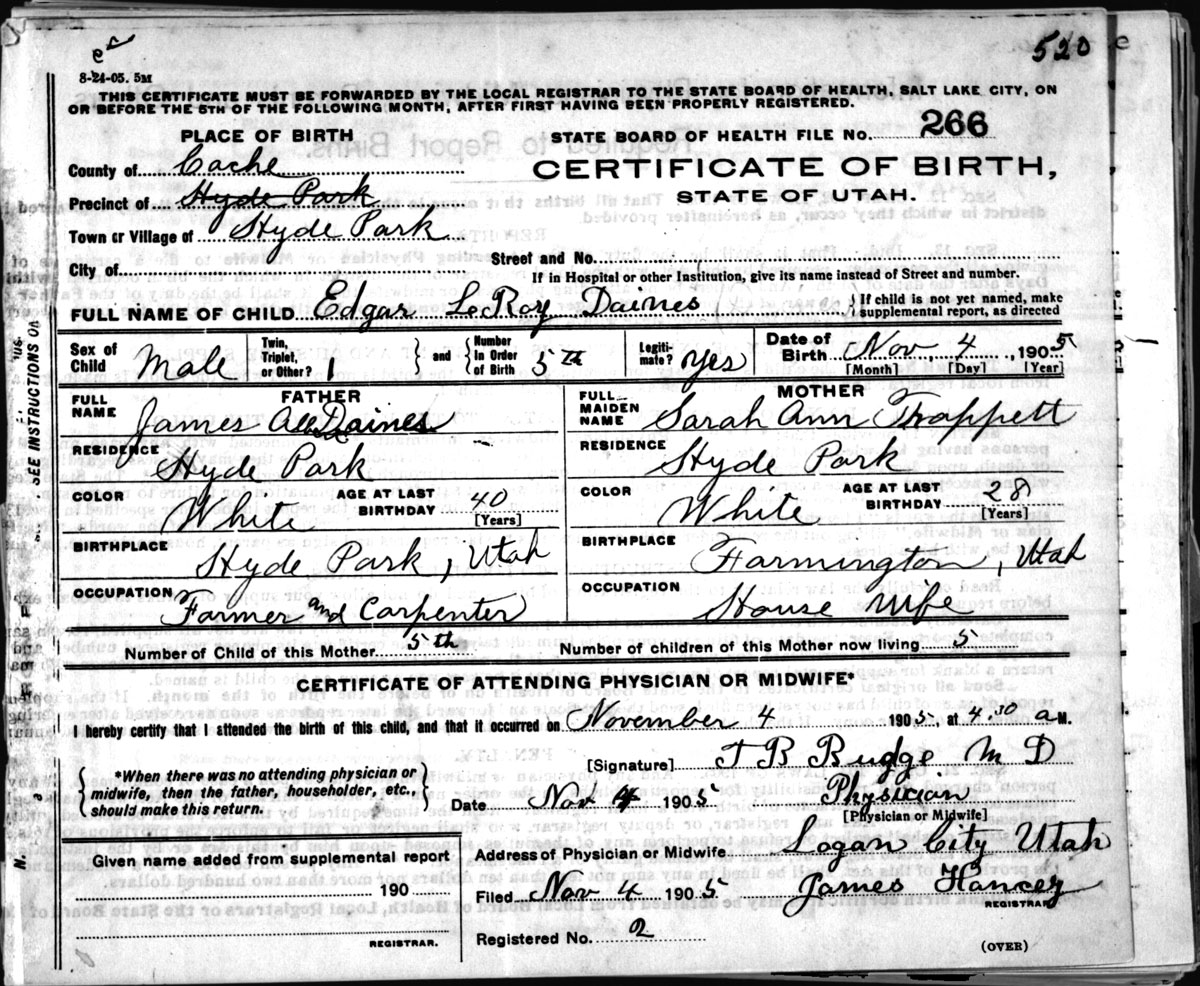 520
8-24-05. 5M
THIS CERTIFICATE MUST BE FORWARDED BY THE LOCAL REGISTRAR TO THE STATE BOARD OF HEALTH, SALT LAKE CITY, ON
OR BEFORE THE 5TH OF THE FOLLOWING MONTH, AFTER FIRST HAVING BEEN PROPERLY REGISTERED.
PLACE OF BIRTH
STATE BOARD OF HEALTH FILE NO. 266
County of Cache
CERTIFICATE OF BIRTH,
Precinct of Hyde Park
STATE OF UTAH.
Town or Village of Hyde Park
City of
Street and No.
If in Hospital or other Institution, give its name instead of Street and number.
FULL NAME OF CHILD Edgar LeRoy Daines
If child is not yet named, make
supplemental report, as directed
Sex of Child Male
Twin, Triplet, or Other? 1
and
Number in Order of Birth 5th
Legiti-mate? Yes
Date of Birth Nov. 4, 1905
[Month] [Day] [Year]
FATHER
FULL NAME James Daines
RESIDENCE Hyde Park
COLOR White
AGE AT LAST BIRTHDAY 40
[Years]
BIRTHPLACE Hyde Park, Utah
OCCUPATION Farmer and Carpenter
MOTHER
FULL MAIDEN NAME Sarah Ann Thappett
RESIDENCE Hyde Park
COLOR White
AGE AT LAST BIRTHDAY 28
[Years]
BIRTHPLACE Farmington, Utah
OCCUPATION House Wife
Number of Child of this Mother 5th
Number of children of this Mother now living 5
CERTIFICATE OF ATTENDING PHYSICIAN OR MIDWIFE*
I hereby certify that I attended the birth of this child, and that it occurred on November 4 1905, at 4.30 a M.
[Signature] T B Budge M D
*When there was no attending physician or
midwife, then the father, householder, etc.,
should make this return.
Date Nov 4 1905
Physician
[Physician or Midwife]
Given name added from supplemental report
190
REGISTRAR.
Address of Physician or Midwife Logan City Utah
Filed Nov 4 1905
James Hancey
REGISTRAR
Registered No. 2
(OVER)
SEE INSTRUCTIONS